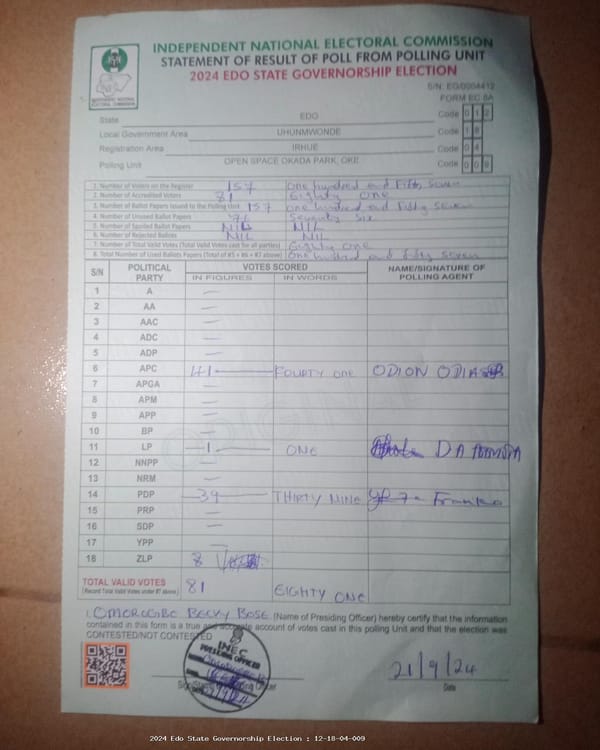 INDEPENDENT NATIONAL ELECTORAL COMMISSION
STATEMENT OF RESULT OF POLL FROM POLLING UNIT
2024 EDO STATE GOVERNORSHIP ELECTION
S/N: EG/0004412
FORM EC 8A
State EDO Code 012
Local Government Area UHUNMWONDE Code 18
Registration Area IRHUE Code 04
Polling Unit OPEN SPACE OKADA PARK, OKE Code 009
1. Number of Voters on the Register 157 One hundred and Fifty Seven
2. Number of Accredited Voters 81 Eighty One
3. Number of Ballot Papers Issued to the Polling Unit 157 One hundred and Fifty Seven
4. Number of Unused Ballot Papers 76 Seventy Six
5. Number of Spoiled Ballot Papers NIL NIL
6. Number of Rejected Ballots NIL NIL
7. Number of Total Valid Votes (Total Valid Votes cast for all parties) Eighty One
8. Total Number of Used Ballots Papers (Total of #5 + #6 + #7 above) One hundred and fifty seven
S/N POLITICAL PARTY VOTES SCORED NAME/SIGNATURE OF POLLING AGENT
IN FIGURES IN WORDS
1 A —
2 AA —
3 AAC —
4 ADC —
5 ADP —
6 APC 41 FOURTY ONE ODION
7 APGA —
8 APM —
9 APP —
10 BP —
11 LP 1 ONE
12 NNPP —
13 NRM —
14 PDP 39 THIRTY NINE
15 PRP —
16 SDP —
17 YPP
18 ZLP
TOTAL VALID VOTES 81 EIGHTY ONE
(Record Total Valid Votes under #7 above)
I, OMOROGBE BECKY BOSE (Name of Presiding Officer) hereby certify that the information
contained in this form is a true and accurate account of votes cast in this polling Unit and that the election was
CONTESTED/NOT CONTESTED
INEC
POLLING OFFICER
21/9/24
Date
2024 Edo State Governorship Election : 12-18-04-009